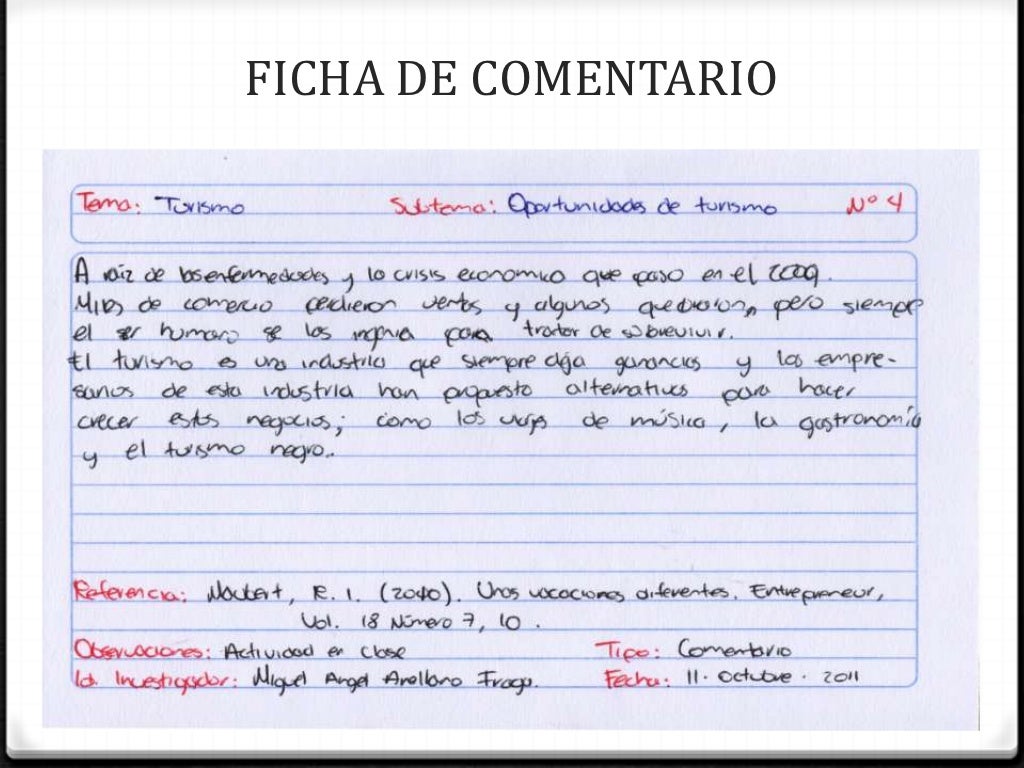 FICHA DE COMENTARIO
Tema: Turismo Subtema: Oportunidades de turismo Nº 4
A raíz de las enfermedades y la crisis economica que paso en el 2009.
Miles de comercio perdieron ventas y algunos quebraron, pero siempre
el ser humano se las ingenia para tratar de sobrevivir.
El turismo es una industria que siempre deja ganancias y los empre-
sarios de esta industria han propuesto alternativas para hacer
crecer estos negocios; como los viajes de música, la gastronomía
y el turismo negro.
Referencia: R. I. (2010). Unas vacaciones diferentes. Entrepreneur,
Vol. 18 Número 7, 10.
Observaciones: Actividad en clase Tipo: Comentario
Id. Investigador: Miguel Angel Arellano Fraga. Fecha: 11. octubre. 2011